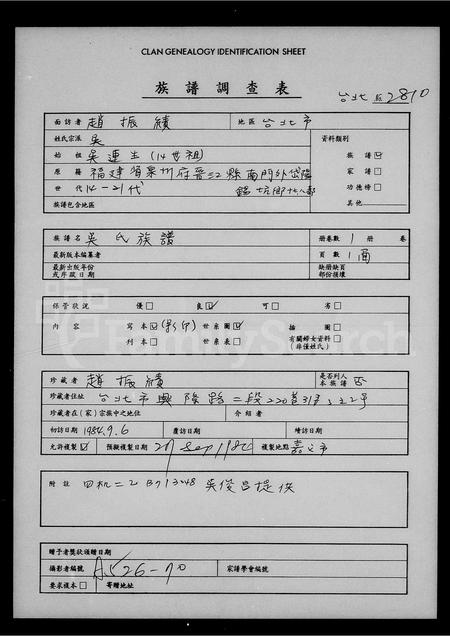 CLAN GENEALOGY IDENTIFICATION SHEET
族譜調查表
台北 2810
面訪者 趙振績 地區 台北市
姓氏宗派 吳 資料類別
始祖 吳連生(14世祖) 族譜☑
原籍 福建省泉州府晉江縣南門外 家譜□
世代 14-21代 功德榜□
族譜包含地區 其他
族譜名 吳氏族譜 册卷數 1 册 卷
最新版本編纂者 頁數 1面
最新出版年份或序跋日期 缺册缺頁部份損壞
保管狀況 優□ 良☑ 可□ 劣□
內容 寫本☑(影印) 世系圖☑ 插圖□
刊本□ 世系表□ 有關婦女資料(非僅姓氏)□
珍藏者 趙振績 是否列入本族譜 否
珍藏者住址 台北市興隆路二段220巷31弄
珍藏者在(家)宗族中之地位 介紹者
初訪日期 1984.9.6 覆訪日期 續訪日期
允許複製☑ 預擬複製日期 複製地點 嘉義市
附註 吳俊昌提供
贈予者獎狀頒贈日期
攝影者編號 A526-70 家譜學會編號
要求複本□ 寄贈地址
FamilySearch